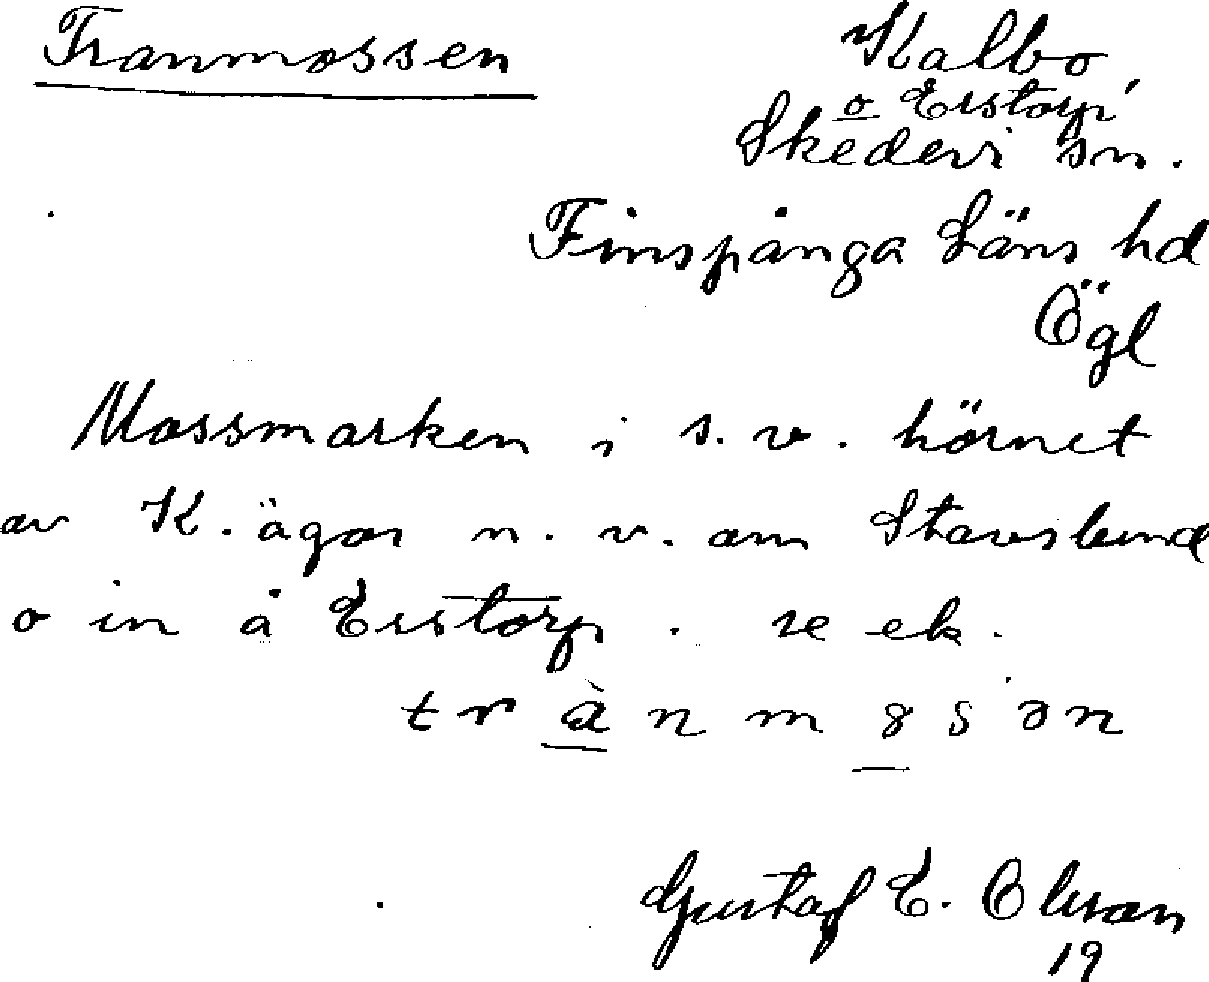 Tranmossen
Kalbo
o Erstorp,
Skedevi sn.
Finspånga Läns hd
Ögl
Mossmarken i s.v. hörnet
av K. ägor n.v. om Stavslund
o in å Erstorp. se ek.
trànmɞsən
Gustaf E. Olson
19